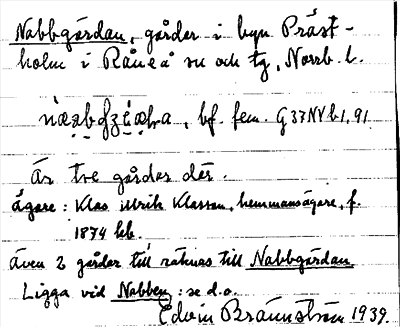 Nabbgårdan, gårdar i byn Präst-
holm i Råneå sn och tg, Norrb. l.
bf. fem. G 37 NV b 1, 91.
Är tre gårdar där.
Ägare: Klas Ulrik Klasson, hemmansägare, f.
1874 bl.
Även 2 gårdar till räknas till Nabbgårdan
Ligga vid Nabben: se d.o.
Edvin Brännström 1939.